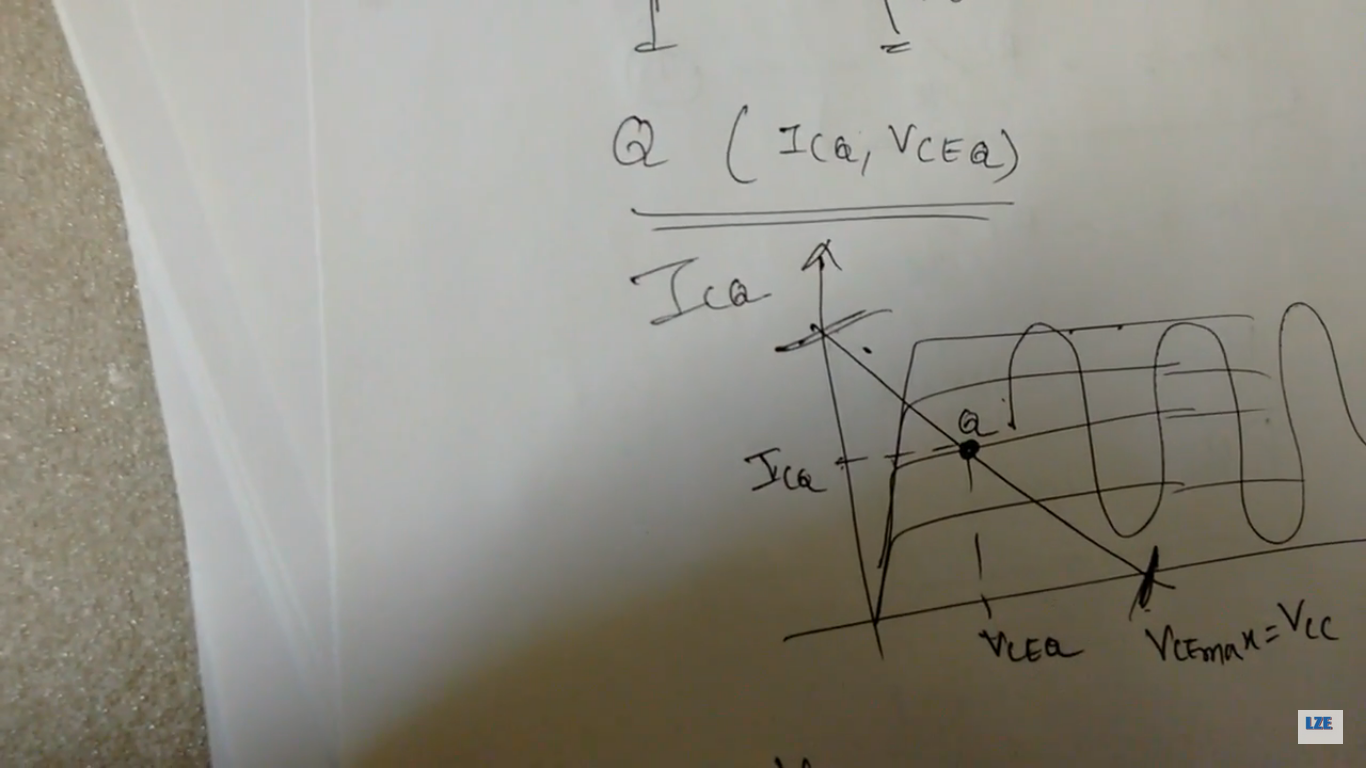 Q ( ICQ, VCEQ)
ICQ
Q
ICQ
VCEQ
VCEmax = VCC
LZE